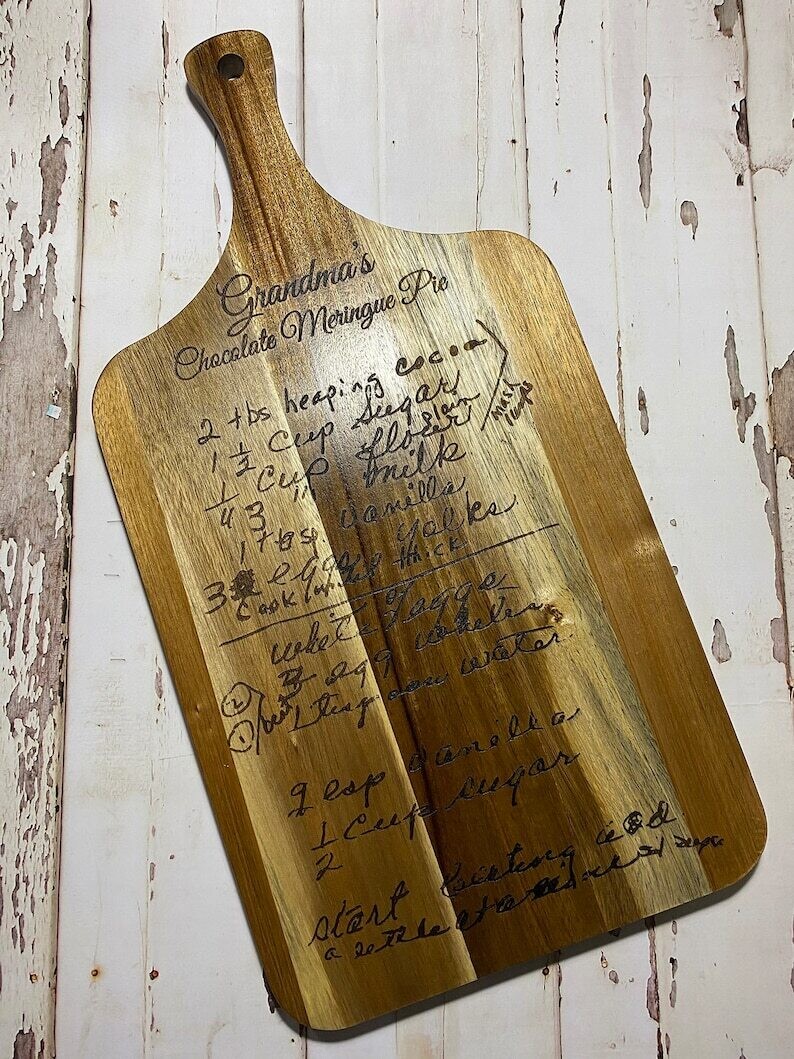 Grandma's
Chocolate Meringue Pie
2 tbs heaping cocoa
1 1/2 cup sugar
mash lumps
1/4 cup flour plain
3 " milk
1 tsp vanilla
3 eggs yolks
Cook until thick
white 7 eggs
3 egg whites
② beat
① 1 tsp water
2 esp vanilla
1/2 cup sugar
start beating add
a little at a time